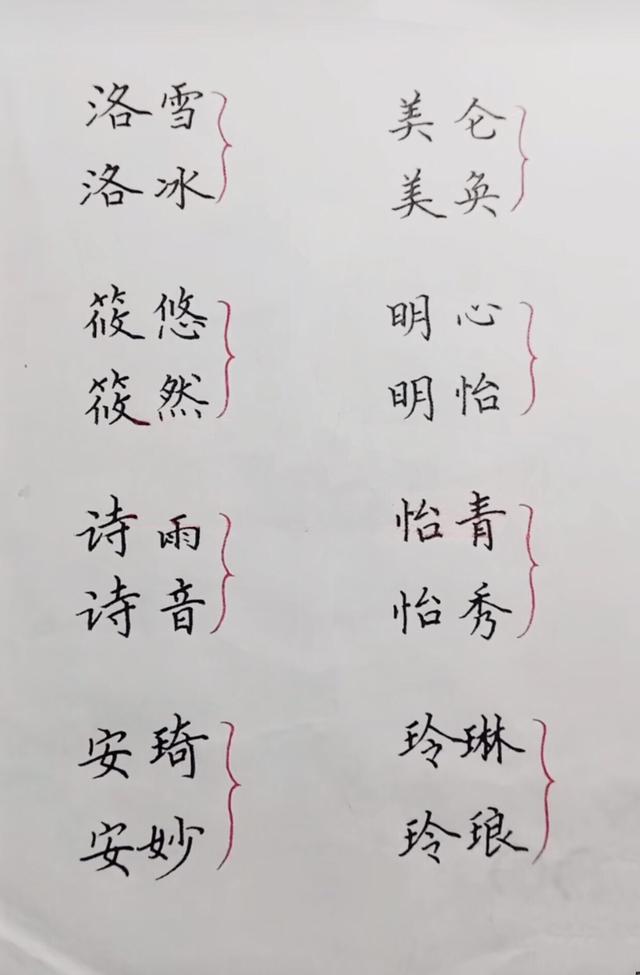 洛雪
洛冰
筱悠
筱然
诗雨
诗音
安琦
安妙
美仑
美奂
明心
明怡
怡青
怡秀
玲琳
玲琅